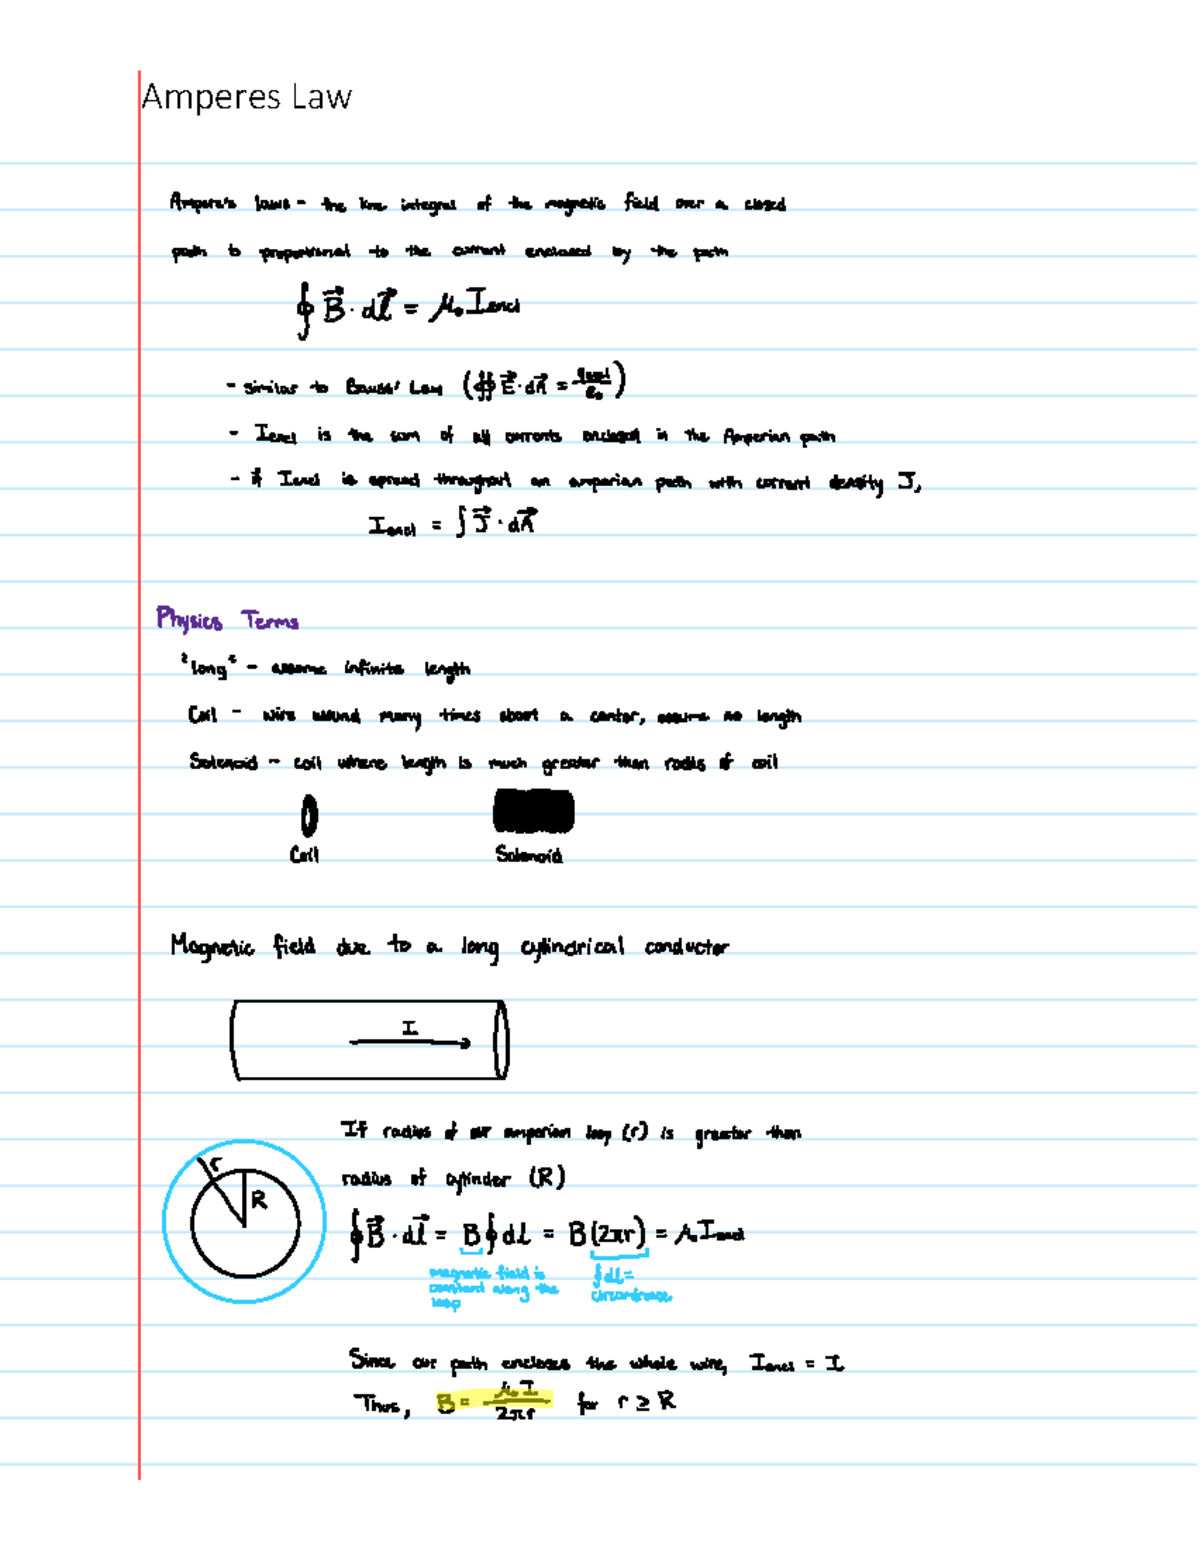 Amperes Law
Ampere's laws - the line integral of the magnetic field over a closed
path is proportional to the current enclosed by the path
∮ B⃗ · dl⃗ = μ₀ I_encl
- similar to Gauss' Law (∯ E⃗ · dA⃗ = q_encl/ε₀)
- I_encl is the sum of all currents enclosed in the Amperian path
- if I_encl is spread throughout an amperian path with current density J,
I_encl = ∫ J⃗ · dA⃗
Physics Terms
"long" - assume infinite length
Coil - wire wound many times about a center, assume no length
Solenoid - coil where length is much greater than radius of coil
Coil Solenoid
Magnetic field due to a long cylindrical conductor
I
If radius of our amperian loop (r) is greater than
radius of cylinder (R)
r
R
∮ B⃗ · dl⃗ = B ∮ dl = B(2πr) = μ₀ I_encl
magnetic field is constant along the loop
∮ dl = circumfrence
Since our path encloses the whole wire, I_encl = I
Thus, B = μ₀ I / 2πr for r ≥ R